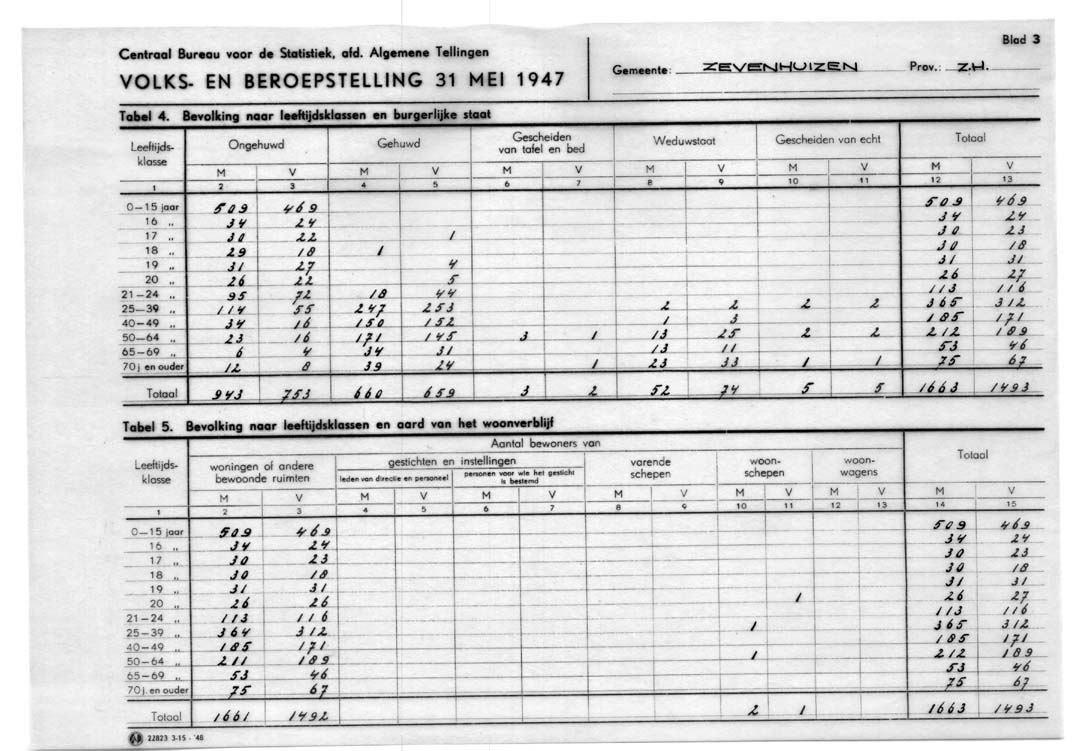 Blad 3
Centraal Bureau voor de Statistiek, afd. Algemene Tellingen
VOLKS- EN BEROEPSTELLING 31 MEI 1947
Gemeente: ZEVENHUIZEN Prov.: Z.H.
Tabel 4. Bevolking naar leeftijdsklassen en burgerlijke staat
Leeftijds-klasse Ongehuwd Gehuwd Gescheiden van tafel en bed Weduwstaat Gescheiden van echt Totaal
M V M V M V M V M V M V
1 2 3 4 5 6 7 8 9 10 11 12 13
0-15 jaar 509 469 509 469
16 „ 34 24 34 24
17 „ 30 22 1 30 23
18 „ 29 18 1 30 18
19 „ 31 27 4 31 31
20 „ 26 22 5 26 27
21-24 „ 95 72 18 44 113 116
25-39 „ 114 55 247 253 2 2 2 2 365 312
40-49 „ 34 16 150 152 1 3 185 171
50-64 „ 23 16 171 145 3 1 13 25 2 2 212 189
65-69 „ 6 4 34 31 13 11 53 46
70 j en ouder 12 8 39 24 1 23 33 1 1 75 67
Totaal 943 753 660 659 3 2 52 74 5 5 1663 1493
Tabel 5. Bevolking naar leeftijdsklassen en aard van het woonverblijf
Leeftijds-klasse Aantal bewoners van Totaal
woningen of andere bewoonde ruimten gestichten en instellingen varende schepen woon-schepen woon-wagens
leden van directie en personeel personen voor wie het gesticht is bestemd
M V M V M V M V M V M V M V
1 2 3 4 5 6 7 8 9 10 11 12 13 14 15
0-15 jaar 509 469 509 469
16 „ 34 24 34 24
17 „ 30 23 30 23
18 „ 30 18 30 18
19 „ 31 31 31 31
20 „ 26 26 1 26 27
21-24 „ 113 116 113 116
25-39 „ 364 312 1 365 312
40-49 „ 185 171 185 171
50-64 „ 211 189 1 212 189
65-69 „ 53 46 53 46
70 j. en ouder 75 67 75 67
Totaal 1661 1492 2 1 1663 1493
22823 3-15 - '48